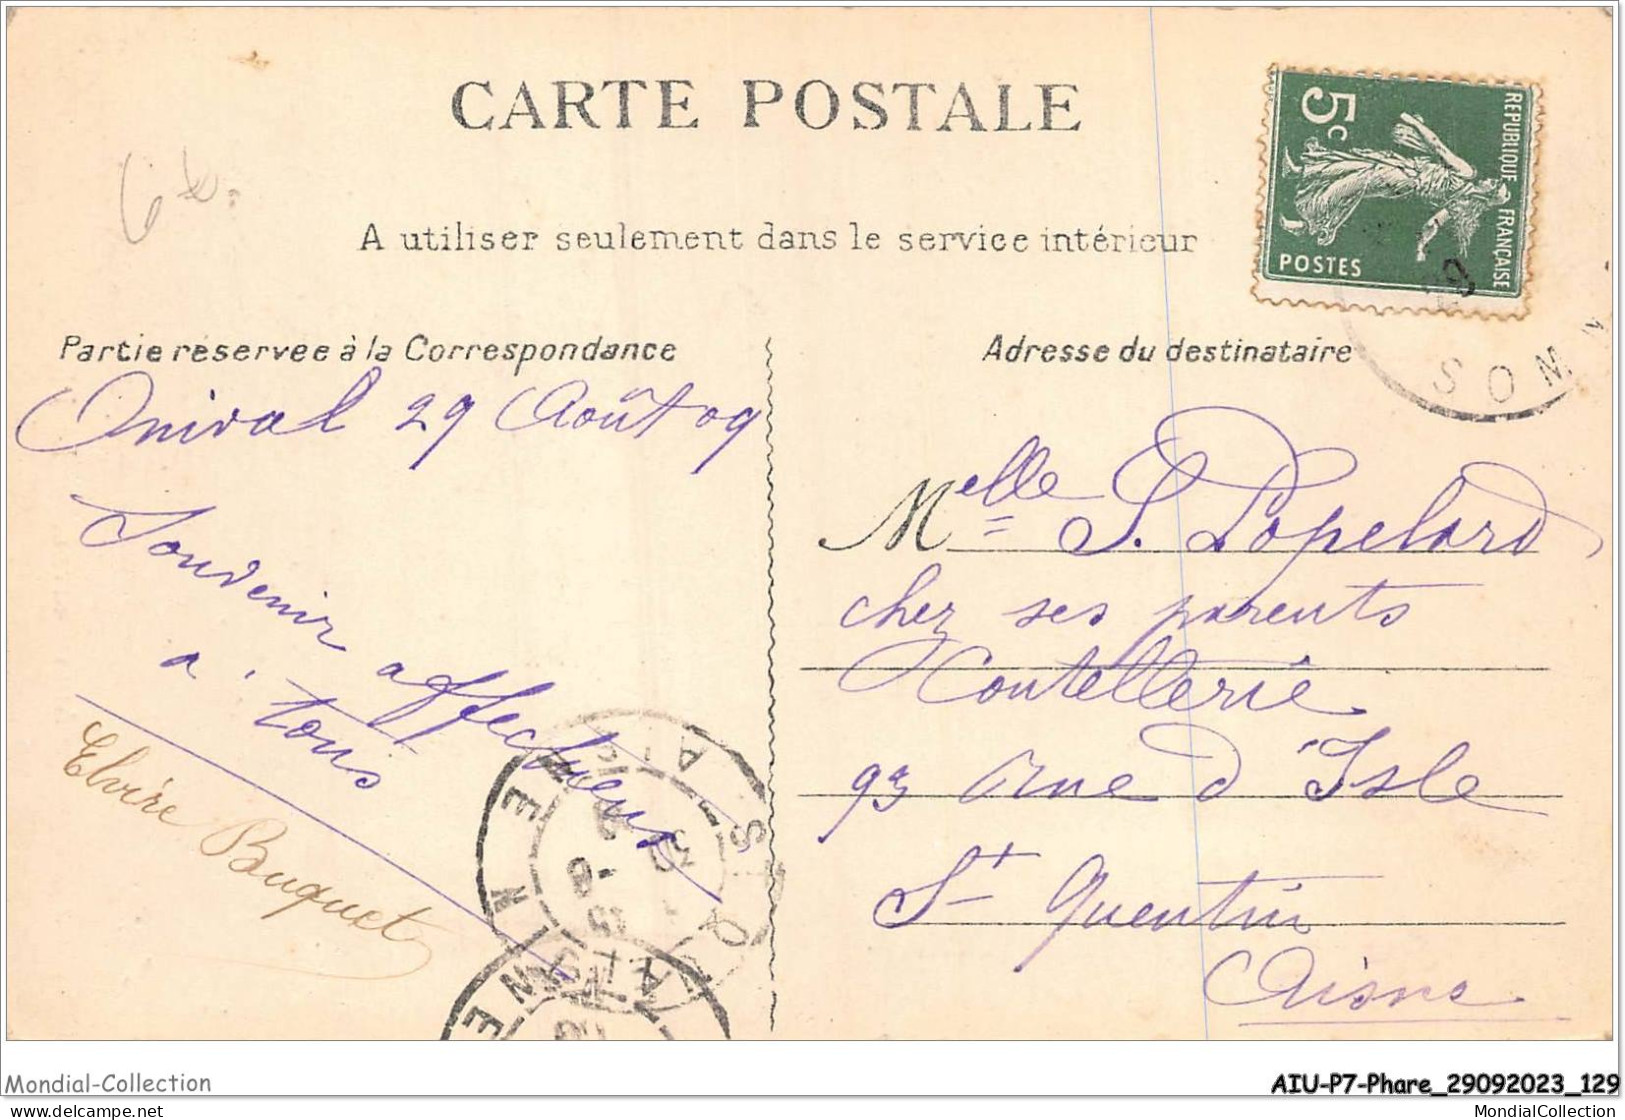 CARTE POSTALE
5c
REPUBLIQUE FRANÇAISE
POSTES
A utiliser seulement dans le service intérieur
Partie réservée à la Correspondance
Adresse du destinataire
SOM
Onival 29 Août 09
Souvenir affectueux
a tous
Elvire Buquet
Melle S. Popelard
chez ses parents
Coutellerie
93 rue d'Isle
St Quentin
Aisne
ST Q
AISNE
Mondial-Collection
AIU-P7-Phare_29092023_129
www.delcampe.net
MondialCollection